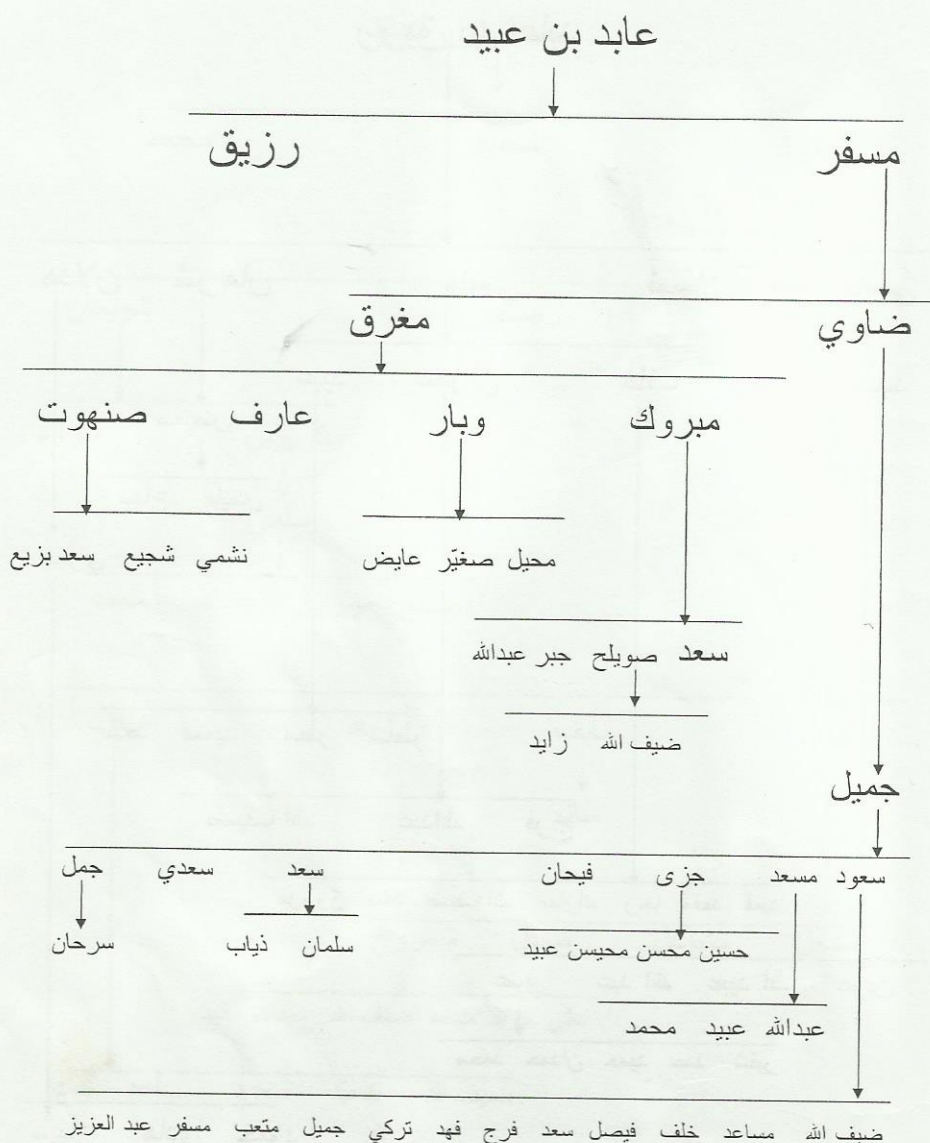 عابد بن عبيد
مسفر رزيق
ضاوي مغرق
مبروك وبار عارف صنهوت
محيل صغيّر عايض
نشمي شجيع سعد بزيع
سعد صويلح جبر عبدالله
ضيف الله زايد
جميل
سعود مسعد جزى فيحان سعد سعدي جمل
حسين محسن محيسن عبيد
سلمان ذياب
سرحان
عبدالله عبيد محمد
ضيف الله مساعد خلف فيصل سعد فرج فهد تركي جميل متعب مسفر عبد العزيز